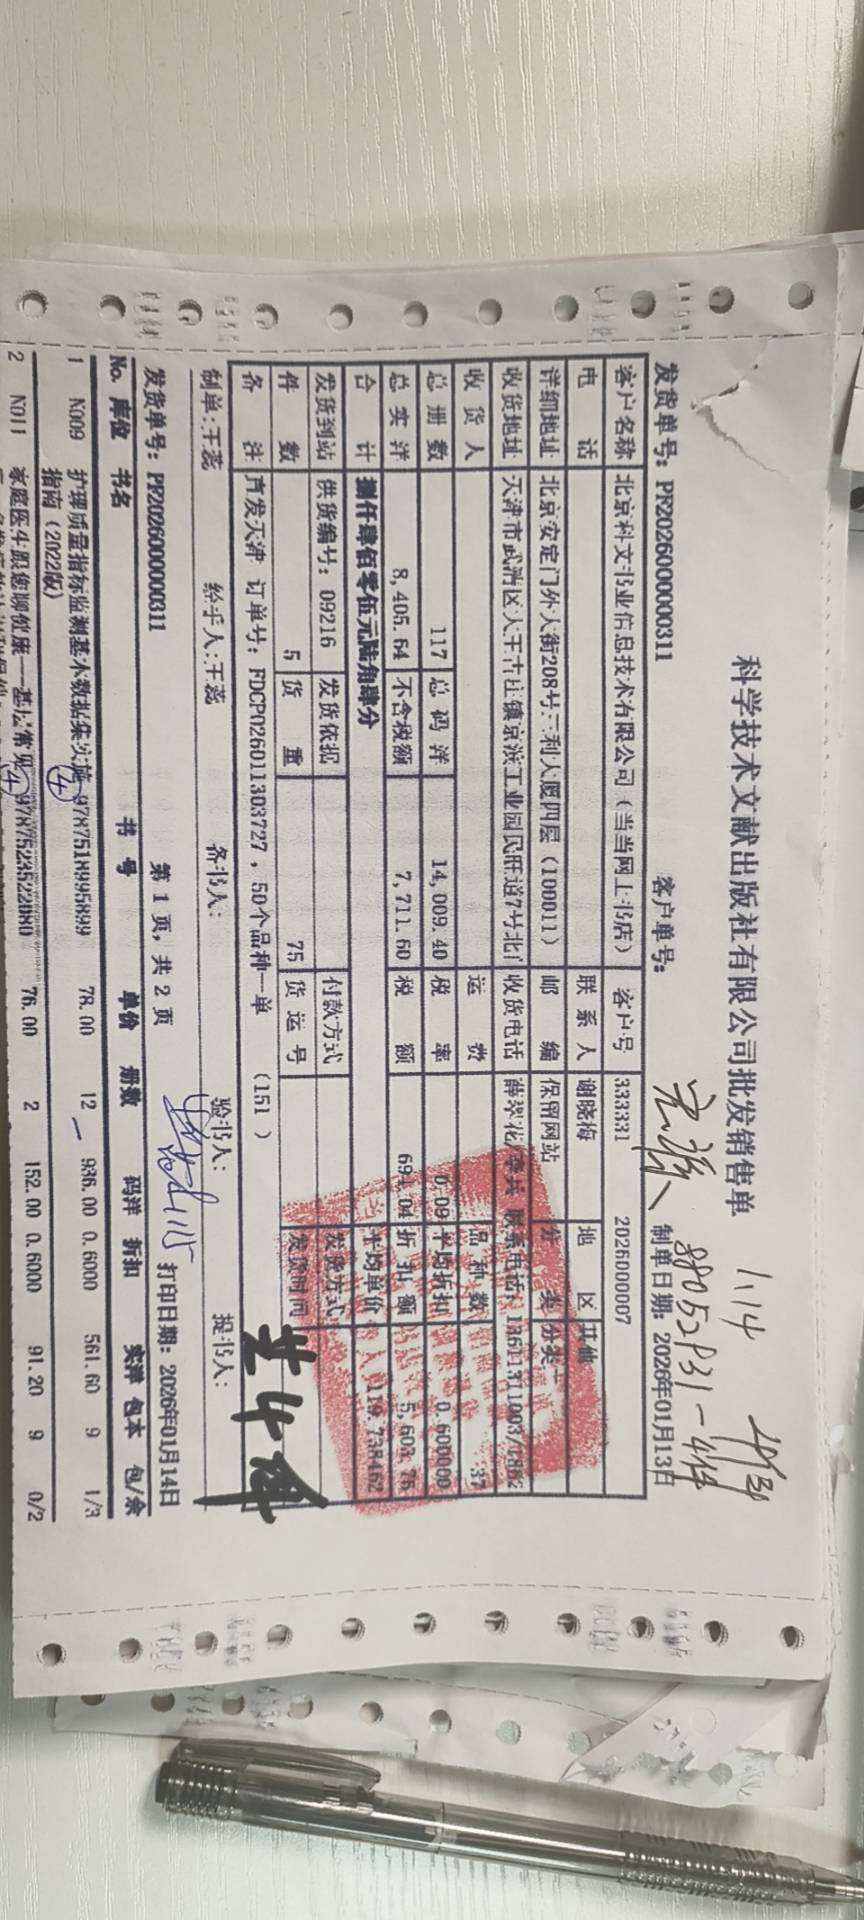 科学技术文献出版社有限公司批发销售单
1.14
发货单号: PF2026000000311 客户单号: 制单日期: 2026年01月13日
88052931-4件
客户名称 北京科文书业信息技术有限公司（当当网上书店） 客户号 333331 2026000007
电 话 联系人 谢晓梅 地 区 其他
详细地址 北京安定门外大街208号三利大厦四层（100011） 邮 编 保留网站 分 类 分类一
收货地址 天津市武清区大王古庄镇京滨工业园民旺道7号北门 收货电话 薛翠花/李兵 联系电话: 13611371003/1882
收货人 运 费 品种数 37
总册数 117 总码洋 14,009.40 税 率 0.09 平均折扣 0.600000
总实洋 8,405.64 不含税额 7,711.60 税 额 694.04 折扣额 5,603.76
合 计 捌仟肆佰零伍元陆角肆分 平均单价 119.738462
发货到站 供货编号: 09216 发货依据 付款方式 发货方式
件 数 5 货 重 75 货运号 发货时间
备 注 直发天津 订单号: FDCP026011303727，50个品种一单 （151 ）
制单:王蕊 经手人:王蕊 备书人: 验书人: 提书人:
发货单号: PF2026000000311 第 1 页, 共 2 页 打印日期: 2026年01月14日
No. 库位 书名 书 号 单价 册数 码洋 折扣 实洋 包本 包/余
1 N009 护理质量指标监测基本数据集实施 ④ 9787518995899 78.00 12 936.00 0.6000 561.60 9 1/3
指南（2022版）
2 N011 家庭医生跟您聊健康——基层常见 ④ 9787523522080 76.00 2 152.00 0.6000 91.20 9 0/2